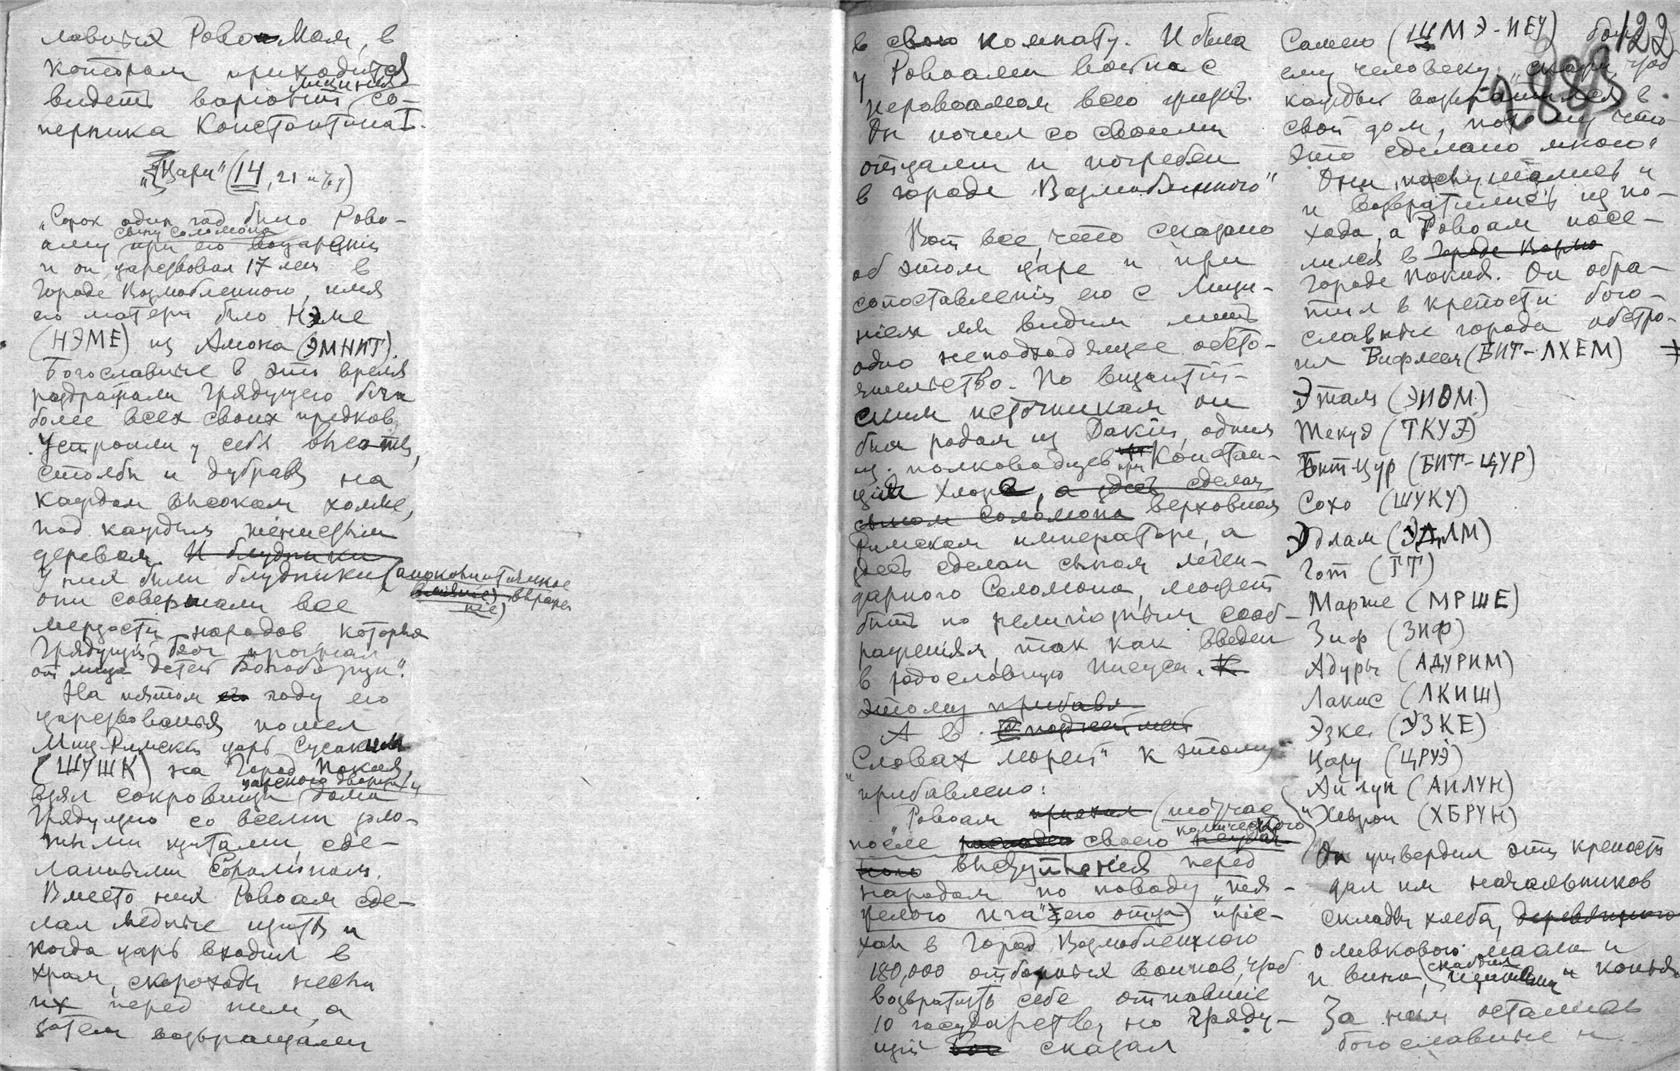 лавных Ровоамом, в
котором приходится
видеть вариант Лициния со-
перника Константина I.
"Цари" (14, 21 и
"Сорок один год было Рово-
аму сыну Соломона при его воцарении
и он царствовал 17 лет в
городе Возлюбленного, имя
его матери было Нэме
(НЭМЕ) из Амона (ЭМНИТ).
Богославные в это время
раздражали Грядущего бога
более всех своих предков.
Устроили у себя высоты,
столбы и дубравы на
каждом высоком холме,
под каждым тенистым
деревом. И блудники
У них были блудники (апокалиптическое
они совершали все
мерзости народов, которых
Грядущий бог прогнал
от лица детей Богоборца".
На пятом его году его
царствованья пошел
Миц-Римский царь Сусаким
(ШУШК) на город Покоя
взял сокровищи дома
царского дворца
Грядущего со всеми золо-
тыми щитами, сде-
ланными Соломоном.
Вместо них Ровоам сде-
лал медные щиты и
когда царь входил в
храм, скороходы несли
их перед ним, а
затем возвращали
в свою комнату. И была
у Ровоама война с
Иеровоамом всю жизнь.
Он почил со своими
отцами и погребен
в городе Возлюбленного"
Вот все, что сказано
об этом царе и при
сопоставлении его с Лици-
нием мы видим лишь
одно неподходящее обсто-
ятельство. По византий-
ским источникам он
был родом из Дакии, одним
из полководцев при Констан-
ции Хлоре, а здесь сделан
сыном Соломона верховном
Римском императоре, а
здесь сделан сыном леген-
дарного Соломона, может
быть по религиозным сооб-
ражениям, так как введен
в родословную Иисуса. К
этому прибавл
А в
"Словах морей" к этому
прибавлено:
"Ровоам приехал (тотчас
после своего комического
выступления перед
народом по поводу "тя-
желого ига" его отца) "прие-
хал в город Возлюбленного
180,000 отборных воинов, чтоб
возвратить себе отпавшие
10 государству, но Гряду-
щий Бог сказал
122
Самею (ШМЭ-ИЕУ)
ему человеку: "скажи, чтоб
каждый возвратился в
свой дом, потому что
это сделано мною"
Они послушались
и возвратились из по-
хода, а Ровоам посе-
лился в городе
городе Покоя. Он обра-
тил в крепости бого-
славные города обстро-
ил Вифлеем (БИТ-ЛХЕМ)
Этам (ЭИОМ)
Текуд (ТКУЭ)
Бит-Цур (БИТ-ЦУР)
Сохо (ШУКУ)
Эдлам (ЭДЛМ)
Гот (ГТ)
Марше (МРШЕ)
Зиф (ЗИФ)
Адуры (АДУРИМ)
Лакис (ЛКИШ)
Эзке (ЭЗКЕ)
Цару (ЦРУЭ)
Айлун (АИЛУН)
Хеврон (ХБРУН)
Он утвердил эти крепости
дал им начальников
склады хлеба, деревянного
оливкового масла и
и вина, и копья
За ним остались
богославные и